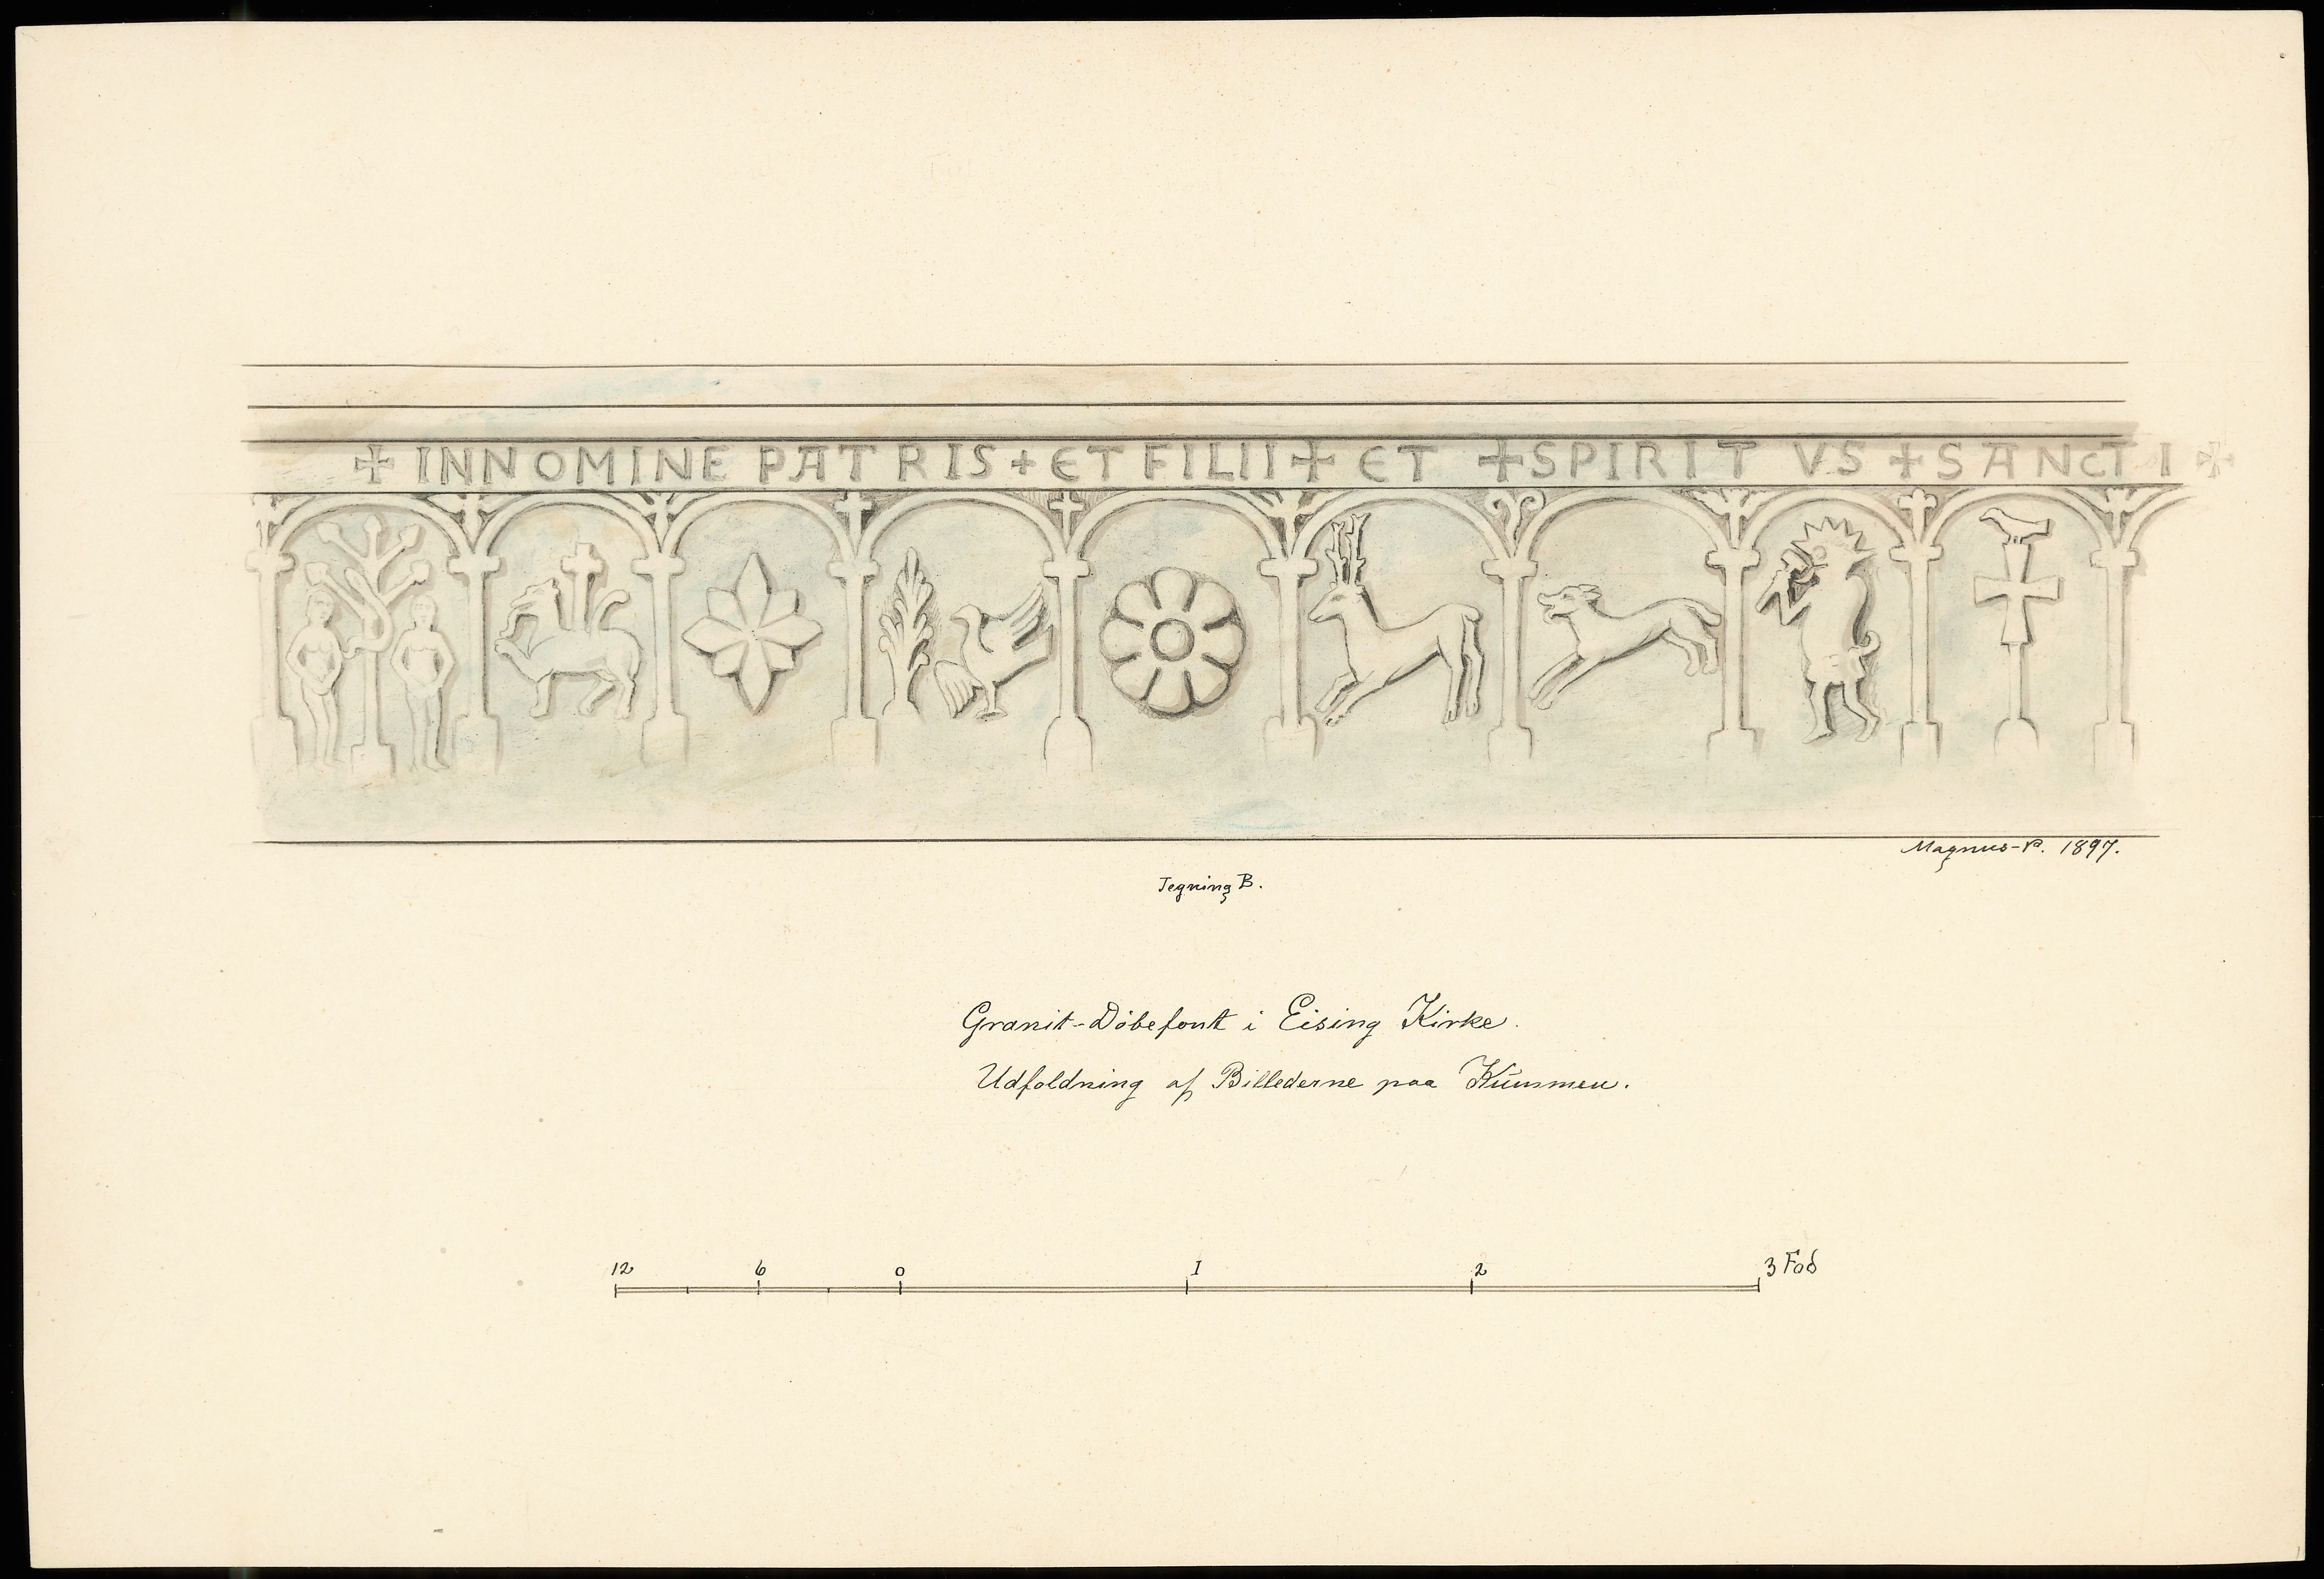 ✠ INNOMINE PATRIS + ET FILII ✠ ET ✠ SPIRIT VS ✠ SANCTI ✠
Magnus-P. 1897.
Tegning B.
Granit-Döbefont i Eising Kirke.
Udfoldning af Billederne paa Kummen.
12 6 0 1 2 3 Fod